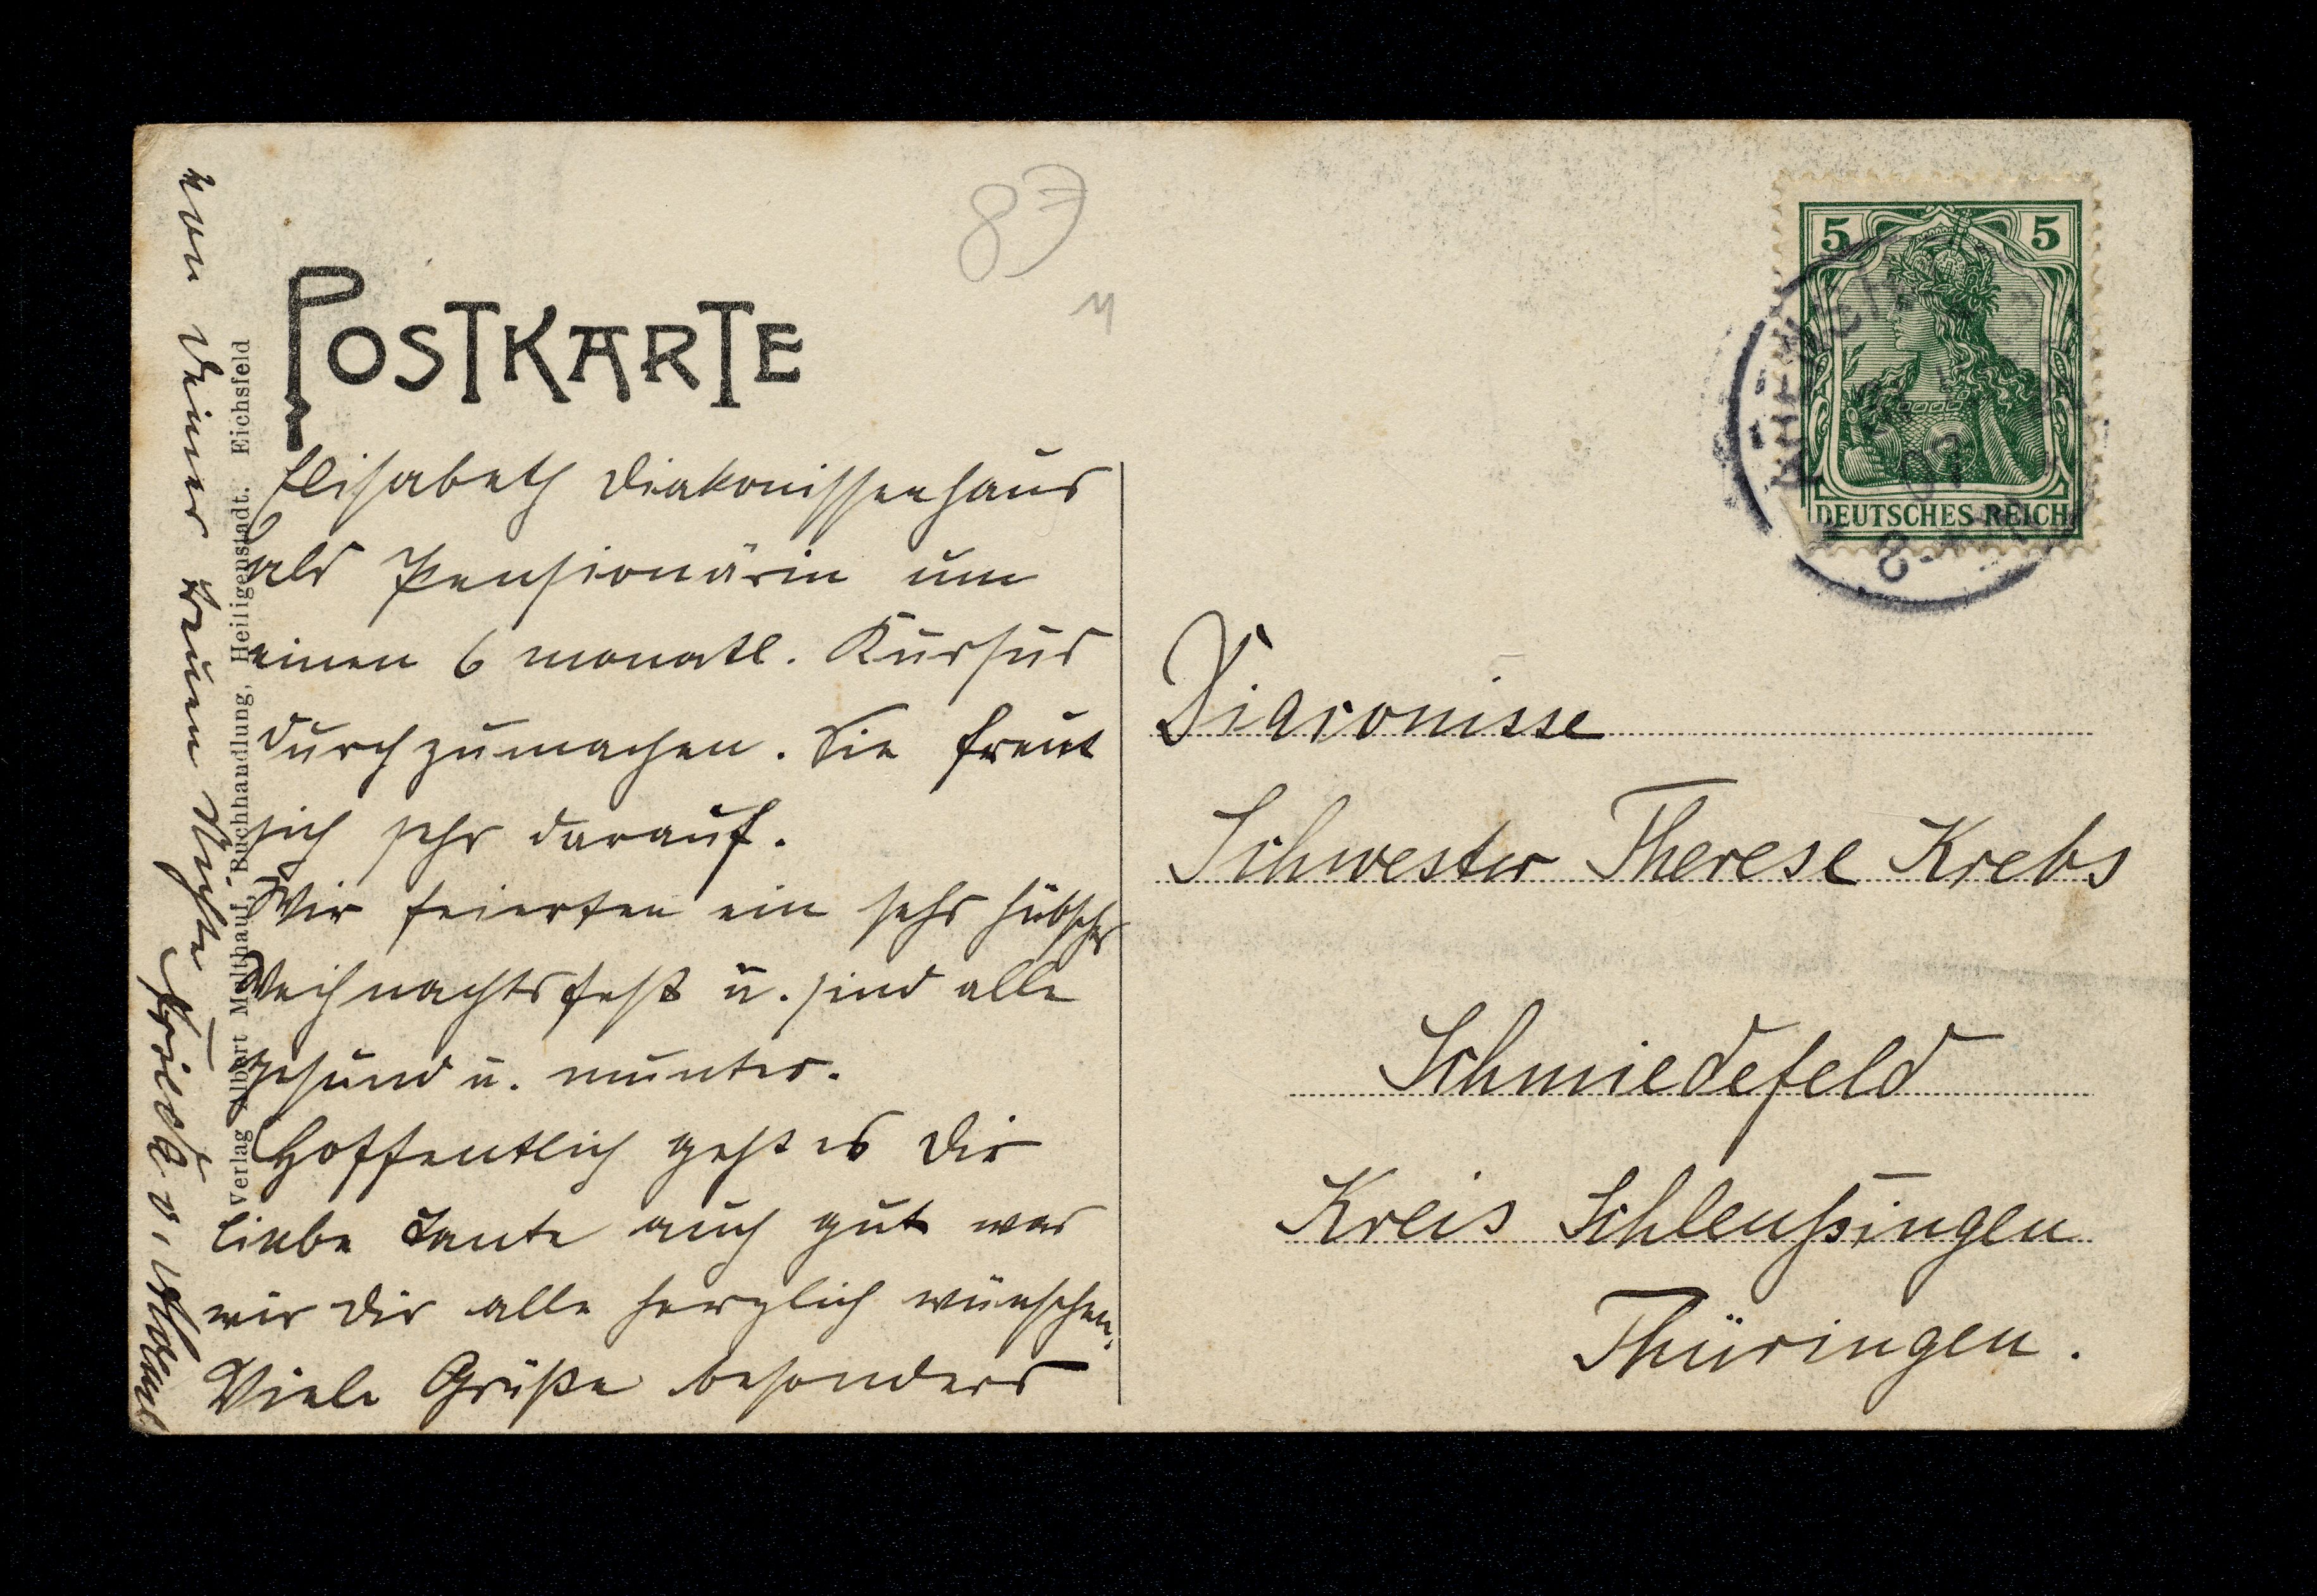 87
POSTKARTE
Elisabeth Diakonissenhaus
als Pensionärin um
einen 6 monatl. Kursus
durchzumachen. Sie freut
sich sehr darauf.
Wir feierten ein sehr hübsches
Weihnachtsfest u. sind alle
gesund u. munter.
Hoffentlich geht es Dir
liebe Tante auch gut was
wir Dir alle herzlich wünschen.
Viele Grüße besonders
von Deiner treuen Nichte
Verlag Albert Mehlhauf, Buchhandlung, Heiligenstadt. Eichsfeld
5 5
DEUTSCHES REICH
07
Diaconisse
Schwester Therese Krebs
Schmiedefeld
Kreis Schleußingen
Thüringen.